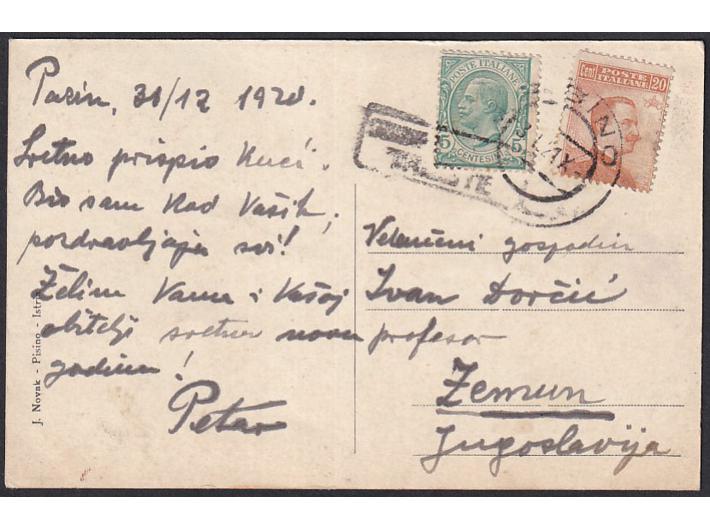 Pazin, 31/12 1920.
Sretno prispio kući.
Bio sam kod Vaših,
pozdravljaju svi!
Želim Vama i Vašoj
obitelji sretnu novu
godinu!
Petar
J. Novak - Pisino - Istria
POSTE ITALIANE
5 5
CENTESIMI
Cent POSTE ITALIANE 20
PISINO
TRIESTE
Velеučeni gospodin
Ivan Dorčić
profesor
Zemun
Jugoslavija